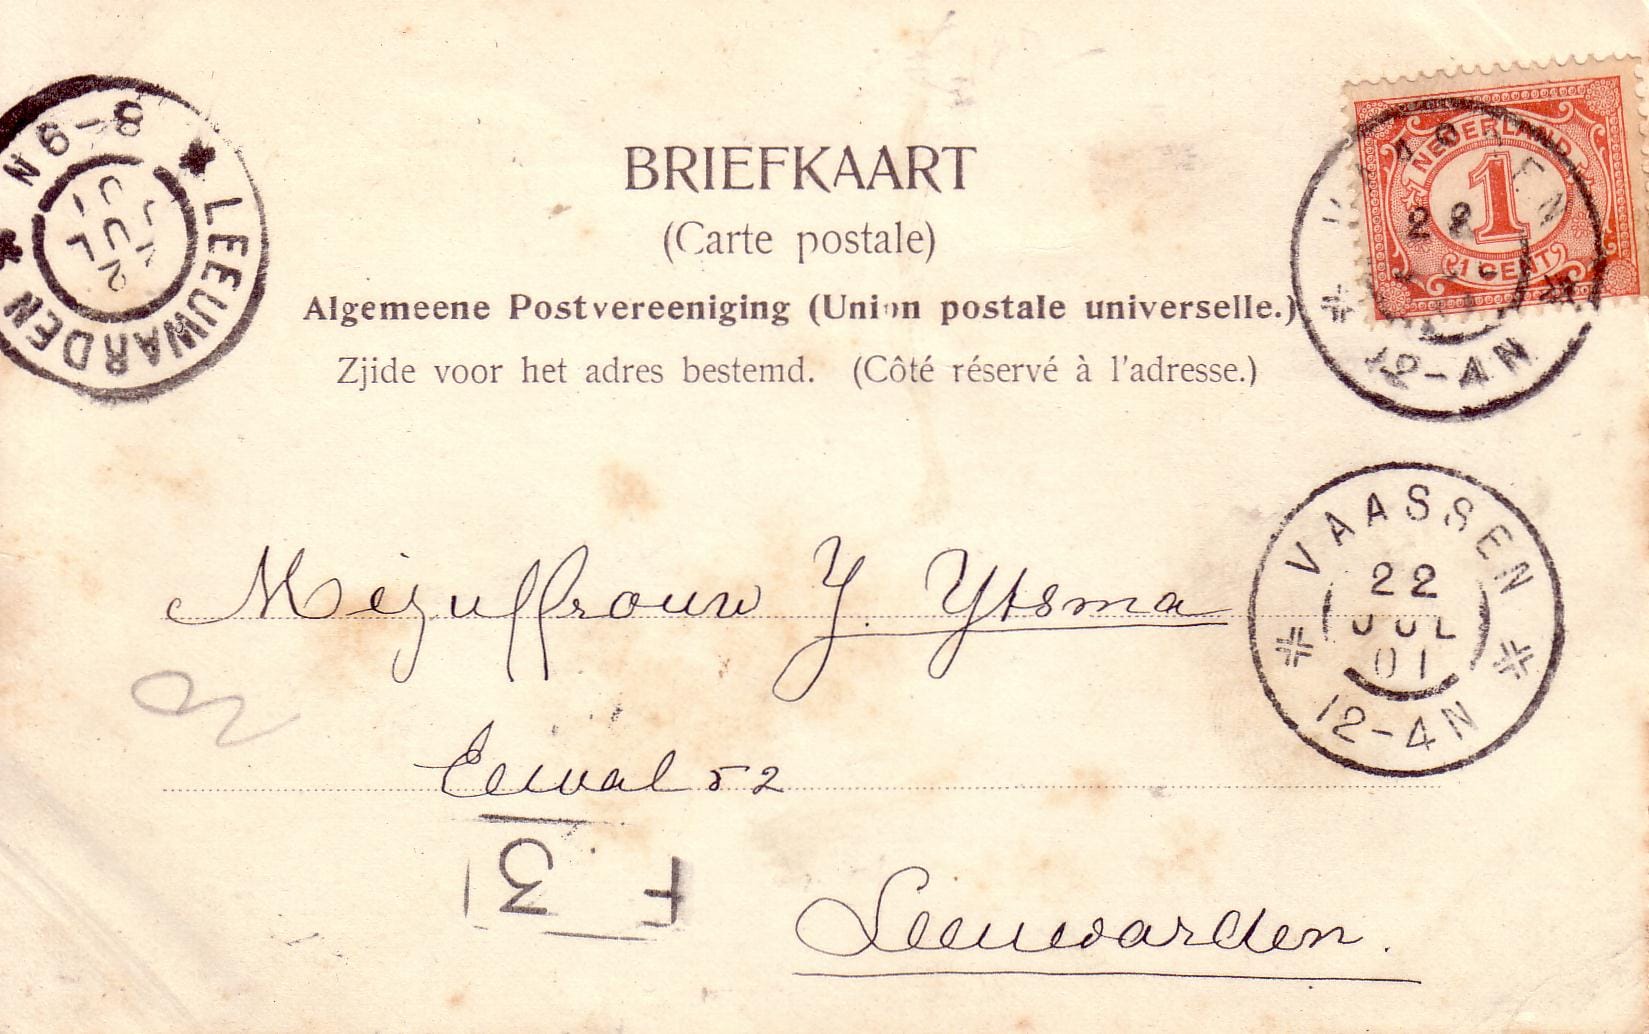 BRIEFKAART
(Carte postale)
Algemeene Postvereeniging (Union postale universelle.)
Zjide voor het adres bestemd. (Côté réservé à l'adresse.)
LEEUWARDEN
8-9N
22
JUL
01
NEDERLAND
1
1 CENT
VAASSEN
22
12-4N
VAASSEN
22
JUL
01
12-4N
Mejuffrouw Y. Ytsma
Eewal 52
F 3
Leeuwarden.